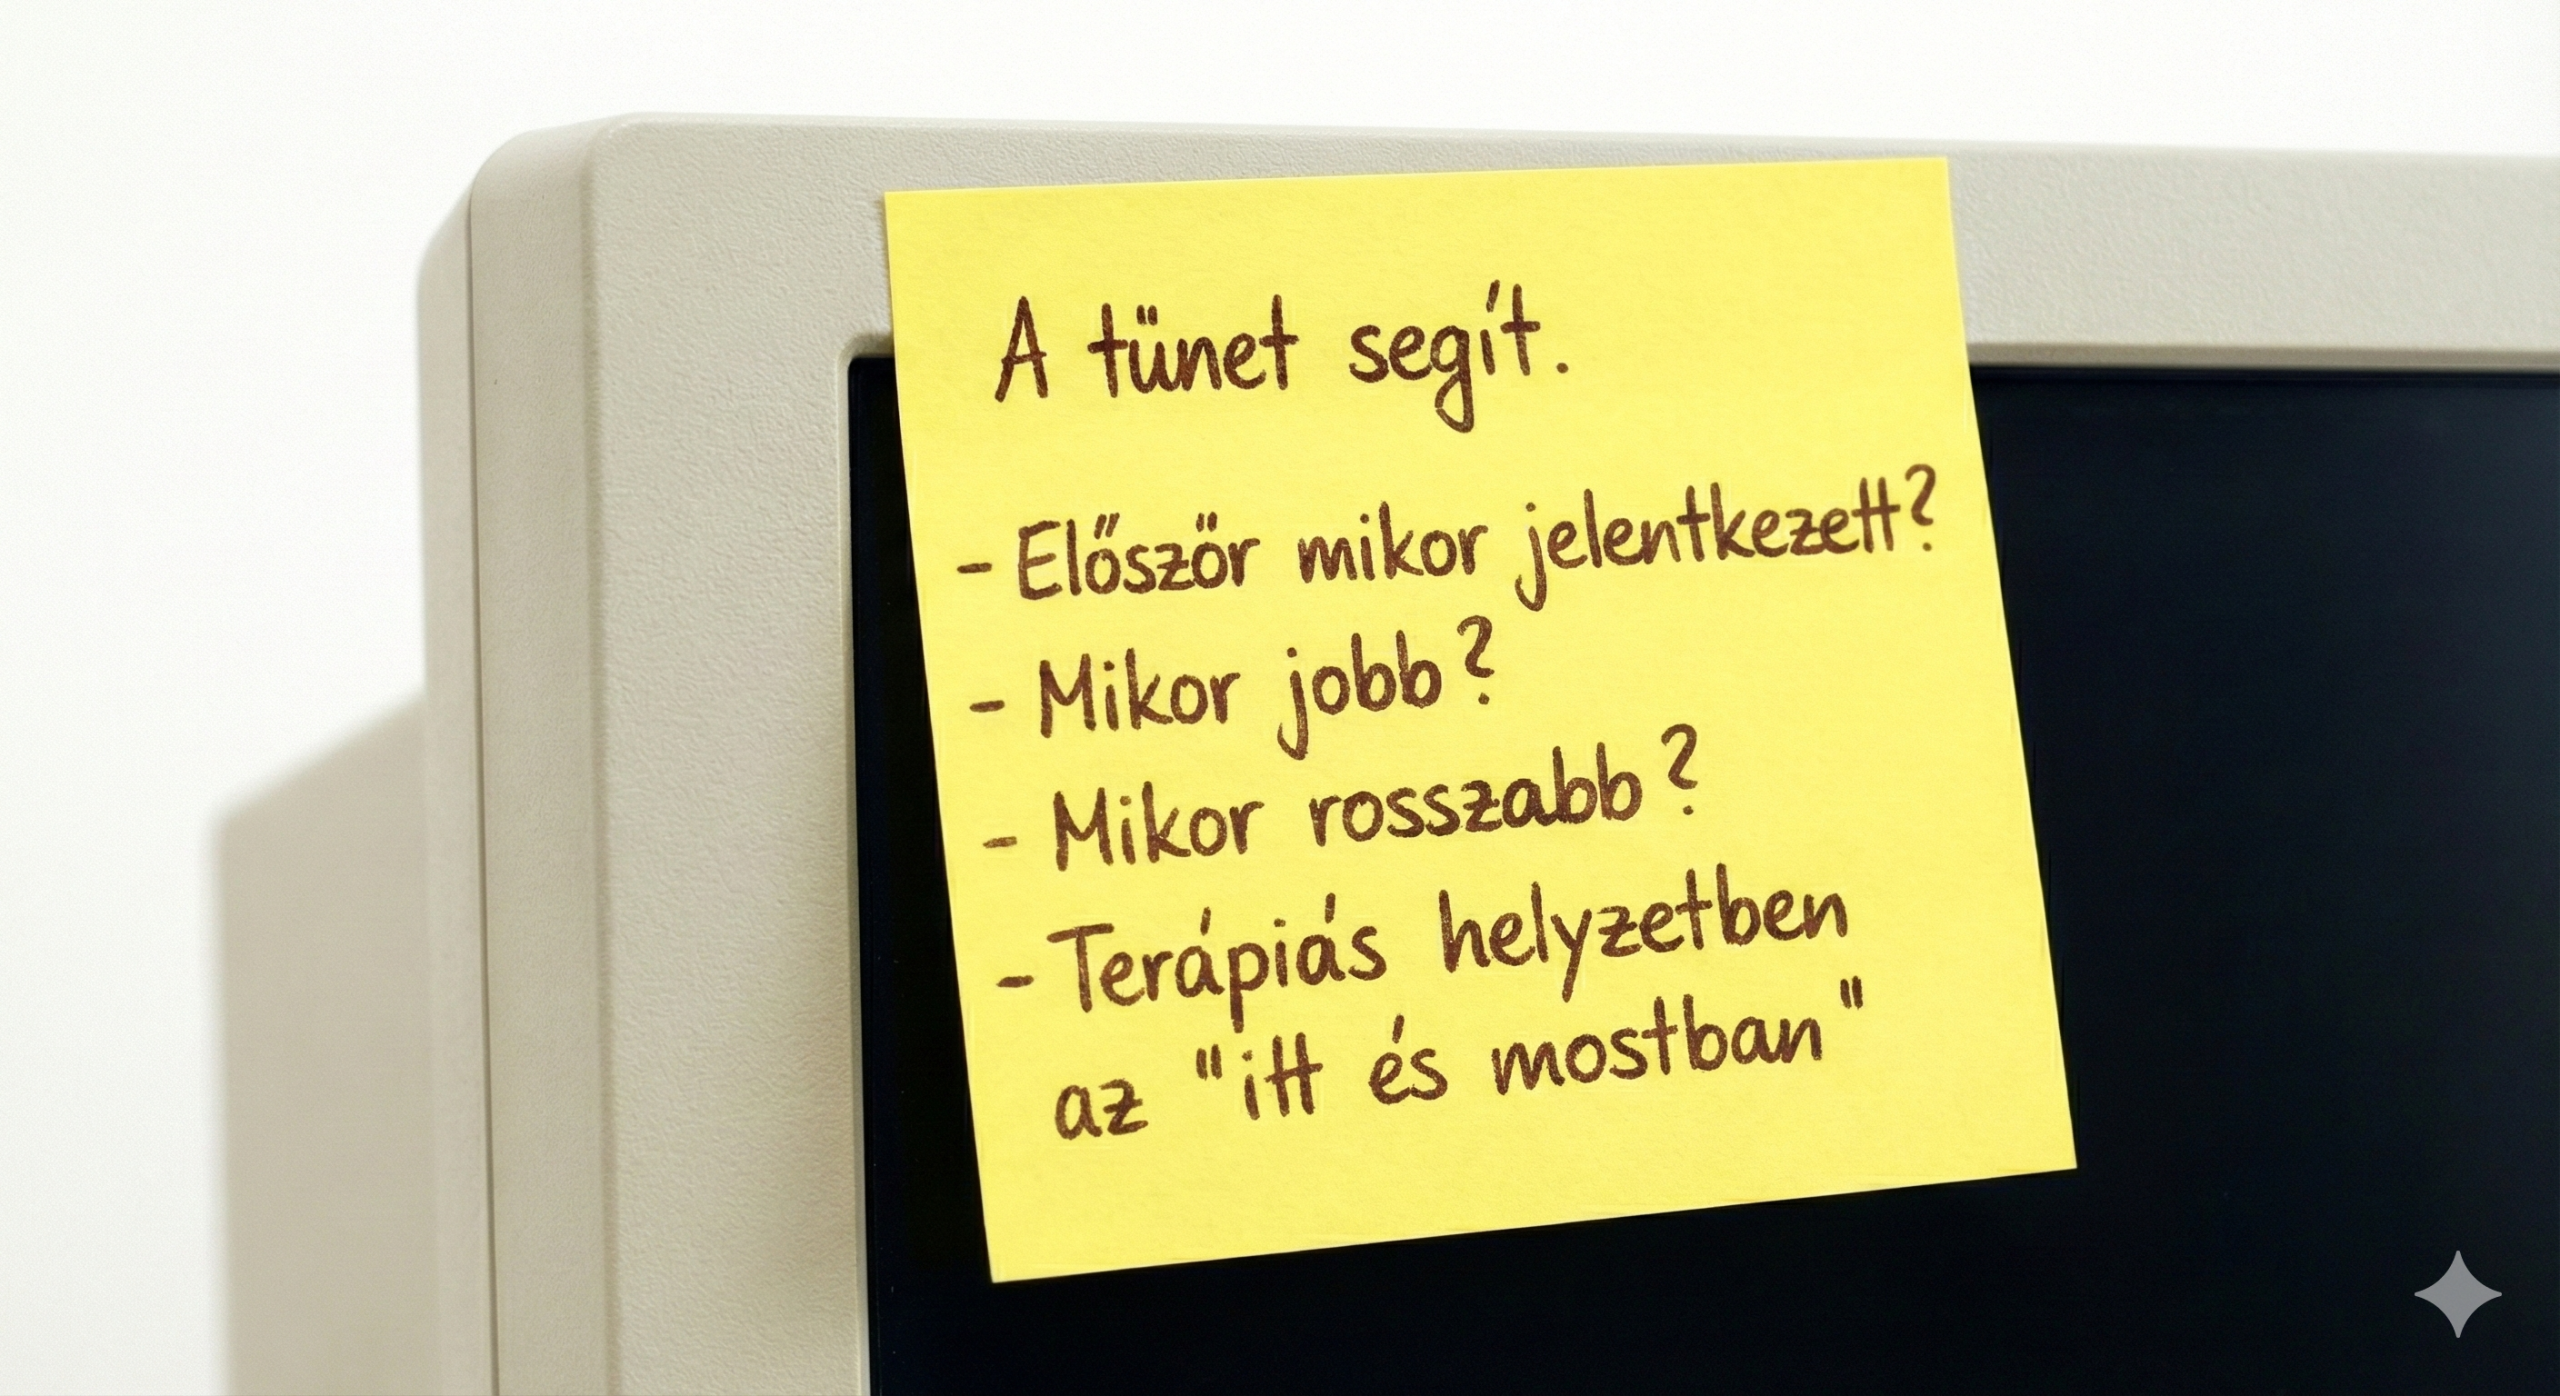 A tünet segít.
- Először mikor jelentkezett?
- Mikor jobb?
- Mikor rosszabb?
- Terápiás helyzetben
az "itt és mostban"